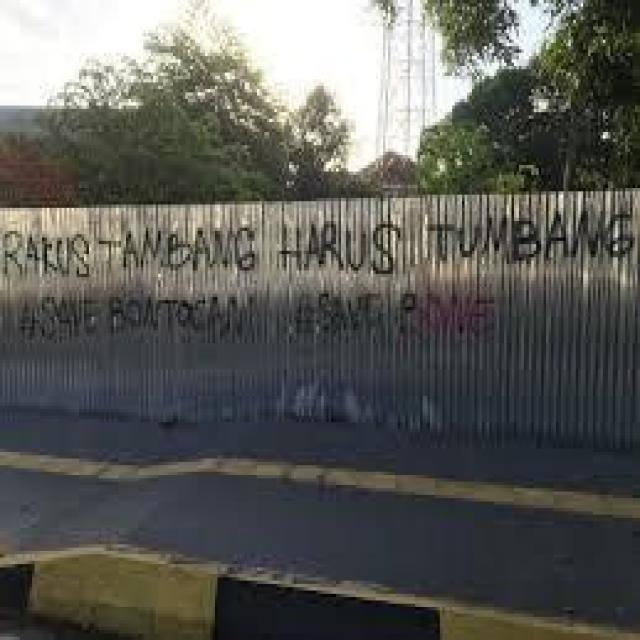 RAKUS TAMBANG HARUS TUMBANG
#SAVE BONTOCANI #SAVE BONE